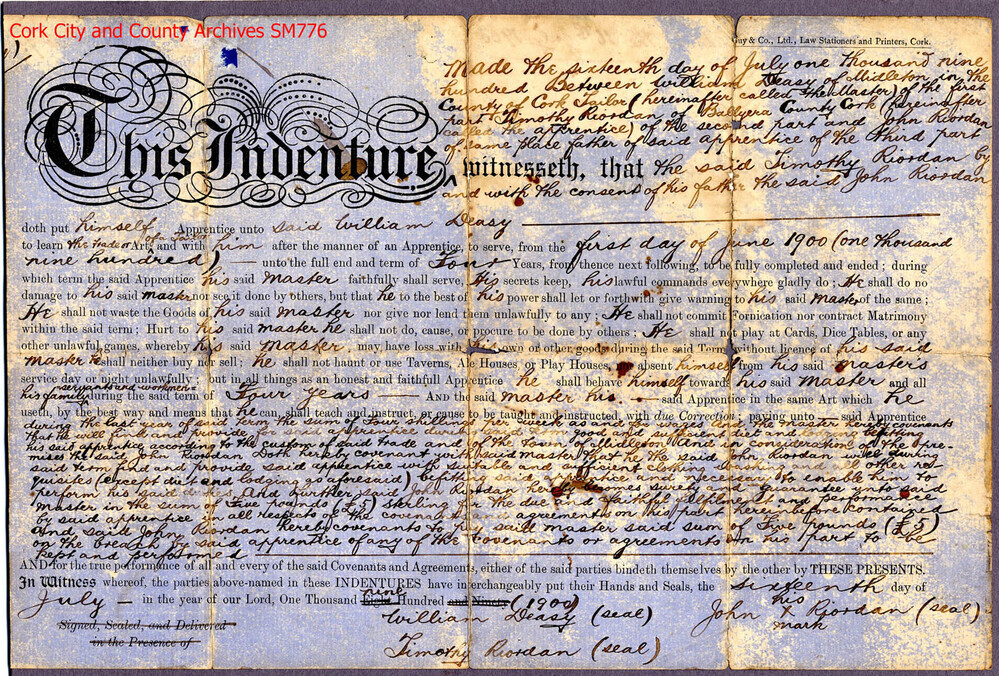 Cork City and County Archives SM776
Guy & Co., Ltd., Law Stationers and Printers, Cork.
Made the sixteenth day of July one thousand nine
hundred Between William Deasy of Midleton in the
County of Cork Tailor (hereinafter called the Master) of the first
part Timothy Riordan of Ballyera County Cork (hereinafter
called the apprentice) of the second part and John Riordan
of same place father of said apprentice of the third part
This Indenture, witnesseth, that the said Timothy Riordan by
and with the consent of his father the said John Riordan
doth put himself Apprentice unto said William Deasy
to learn the trade or Art of a Tailor and with him after the manner of an Apprentice, to serve, from the first day of June 1900 (one thousand
nine hundred) — unto the full end and term of Four Years, from thence next following, to be fully completed and ended; during
which term the said Apprentice his said Master faithfully shall serve, His secrets keep, his lawful commands everywhere gladly do; He shall do no
damage to his said master nor see it done by others, but that he to the best of his power shall let or forthwith give warning to his said Master of the same;
He shall not waste the Goods of his said Master nor give nor lend them unlawfully to any; He shall not commit Fornication nor contract Matrimony
within the said term; Hurt to his said master he shall not do, cause, or procure to be done by others; He shall not play at Cards, Dice Tables, or any
other unlawful games, whereby his said Master may have loss with his own or other goods during the said Term without licence of his said
Master he shall neither buy nor sell; he shall not haunt or use Taverns, Ale Houses, or Play Houses, or absent himself from his said Masters
service day or night unlawfully; but in all things as an honest and faithful Apprentice he shall behave himself towards his said Master and all
his family servants and workmen during the said term of Four Years — AND the said Master his — said Apprentice in the same Art which he
useth, by the best way and means that he can, shall teach and instruct, or cause to be taught and instructed, with due Correction; paying unto — said Apprentice
during the last year of said term the sum of Four shillings per week as and for wages and the Master hereby covenants
that he will find and provide for said apprentice during said good and sufficient diet and lodging
his said apprentice according to the custom of said trade and of the Town of Midleton And in consideration of the pre-
mises the said John Riordan Doth hereby covenant with said master that he the said John Riordan will during
said term find and provide said apprentice with suitable and sufficient clothing washing and all other re-
quisites (except diet and lodging as aforesaid) befitting said apprentice and necessary to enable him to
perform his said duties And further said John Riordan hereby becomes surety and guarantee unto said
Master in the sum of Five pounds (£5) sterling for the due and faithful fulfilment and performance
by said apprentice in all respects of the covenants and agreements on his part hereinbefore contained
And said John Riordan hereby covenants to pay said master said sum of Five pounds (£5)
on the breach by said apprentice of any of the Covenants or agreements on his part to be
kept and performed
AND for the true performance of all and every of the said Covenants and Agreements, either of the said parties bindeth themselves by the other by THESE PRESENTS.
In Witness whereof, the parties above-named in these INDENTURES have interchangeably put their Hands and Seals, the sixteenth day of
July — in the year of our Lord, One Thousand Eight nine Hundred and Ninety (1900)
William Deasy (seal) John his X mark Riordan (seal)
Signed, Sealed, and Delivered
in the Presence of
Timothy Riordan (seal)